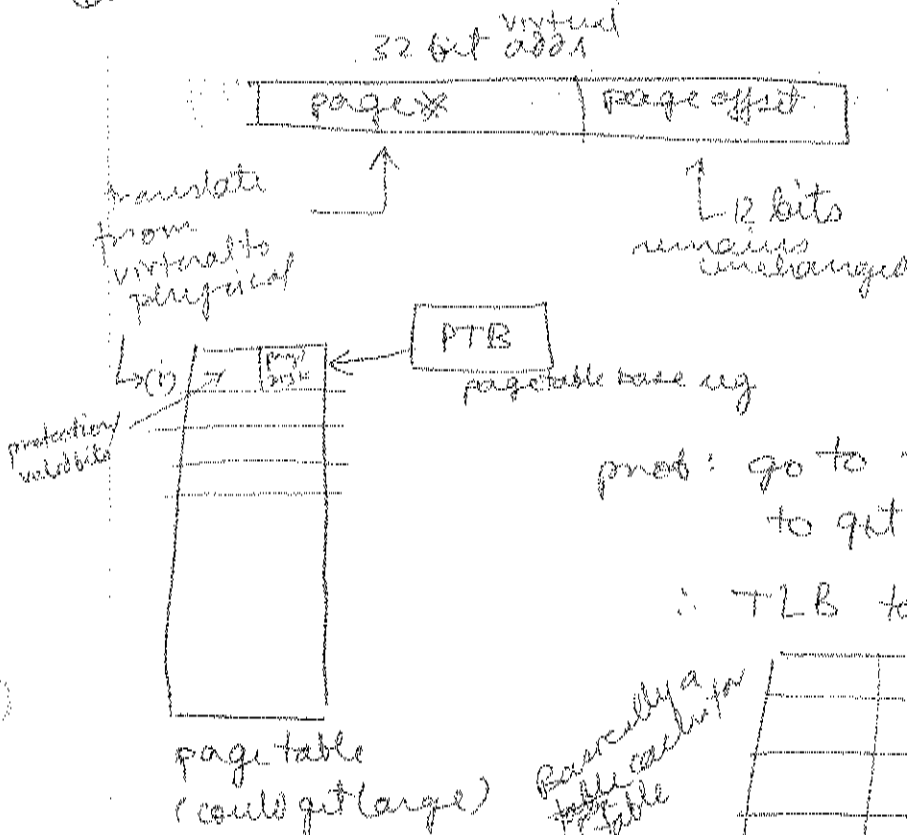 32 bit virtual addr
page # page offset
translate
from
virtual to
physical
12 bits
remains
unchanged
PTB
page table base reg
(i)
protection/
valid bits
prob: go to
to get
∴ TLB to
page table
(could get large)
Basically a
table cache for
table